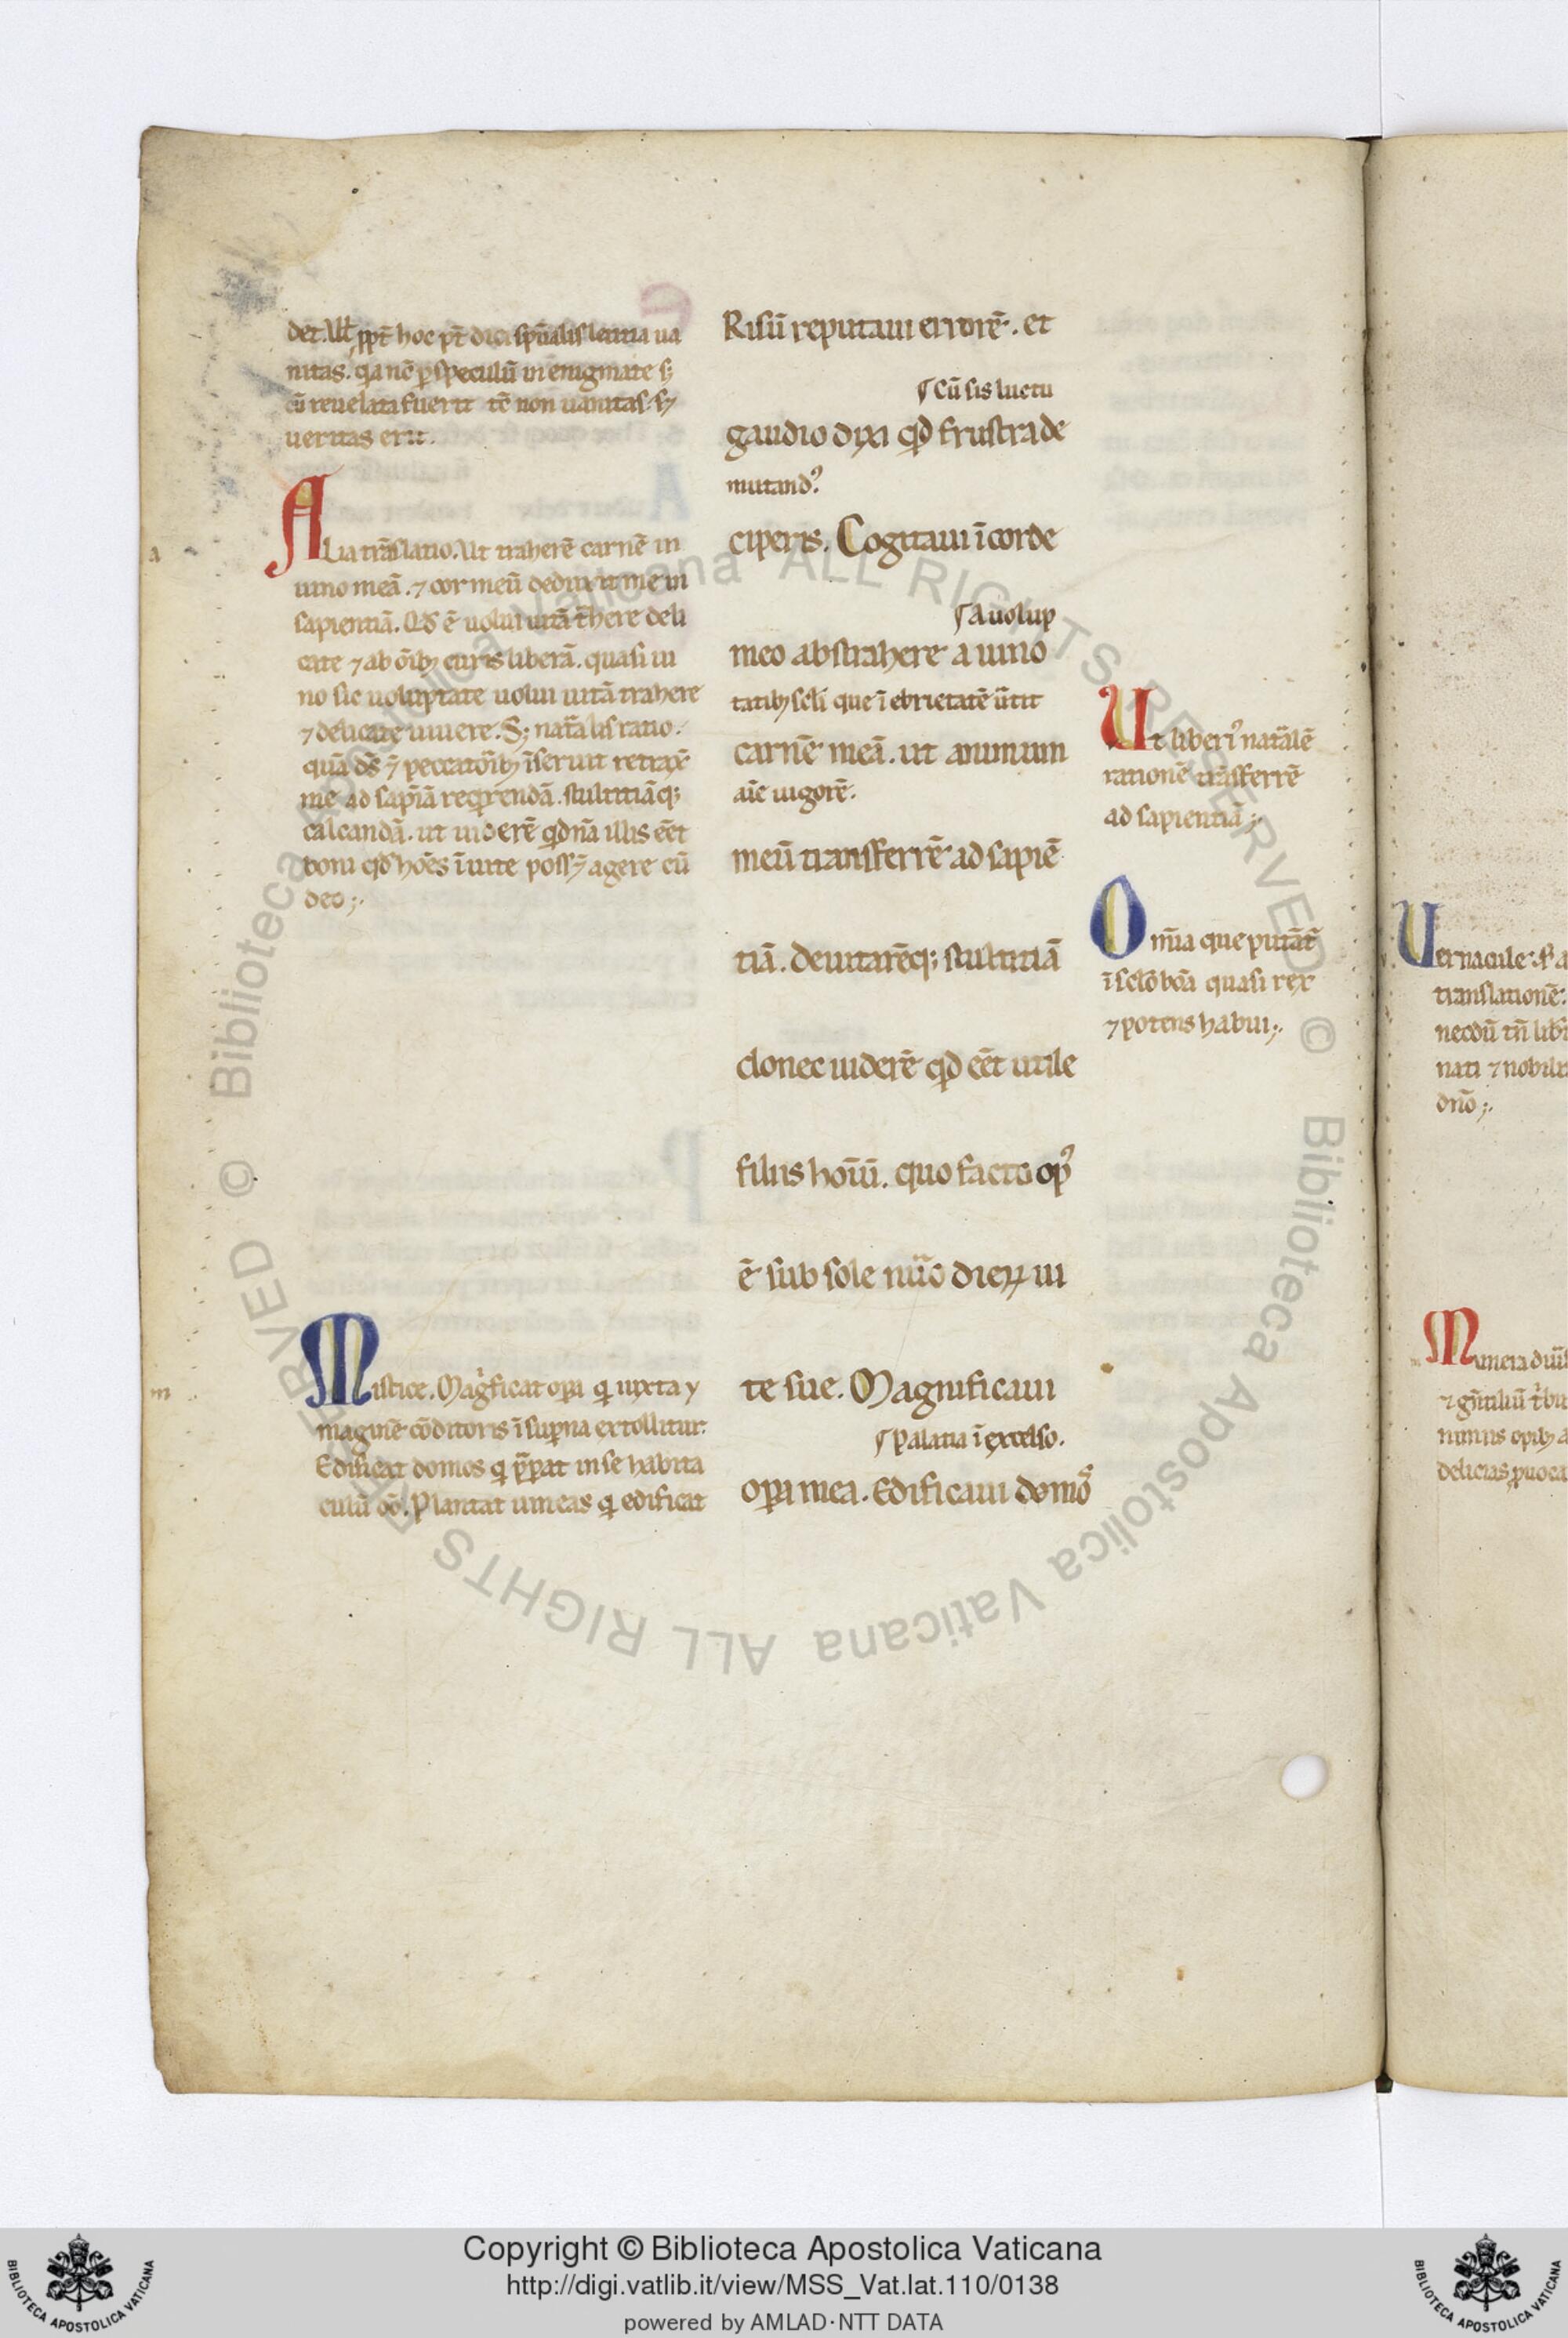 det. Ul̄ ꝓp̄t hoc pōt dici sp̄ualis letitia ua
nitas. q̇a nc̄ ꝑ speculū in enigmate sꝫ
cū reuelata fuerit tc̄ non uanitas. sꝫ
ueritas erit.
Alia trāslatio. Ut traherē carnē in
uino meā. ⁊ cor meū deduxit me in
sapientiā. Qd̄ ē uolui uitā t̄here deli
cate ⁊ ab ōibꝫ curis liberā. quasi ui
no sic uoluptate uolui uitā trahere
⁊ delicate uiuere. Sꝫ nat̄alis ratio.
quā ds̄ ⁊̄ peccatōibꝫ īseruit retrax̄
me ad sap̄iā req̇rendā. stultitiāqꝫ
calcandā. ut uiderē qd̄nā illis eēt
boni qd̄ hoēs ī uite poss̄ agere cū
deo;.
Mistice. Mag̾ficat oꝑa q̇ iuxta y
maginē cōditoris ī suꝑna extollitur.
Edificat domos q̇ p̄parat in se habita
culū dō. Plantat uineas q̇ edificat
Risū reputaui errorē. et
¶ Cū sis luctu
gaudio dixi qd̄ frustra de
mutandꝰ
ciperis. Cogitaui ī corde
¶ A uolup
meo abstrahere a uino
tatibꝫ scl̄i que ī ebrietatē ūtit
carnē meā. ut animum
aīe uigorē.
meū transferrē ad sapiē
tiā. deuitarēqꝫ stultitiā
donec uiderē qd̄ eēt utile
filiis hoīū. quo facto opꝰ
ē sub sole nūo dieꝝ ui
te sue. Magnificaui
¶ Palatia ī excelso.
oꝑa mea. Edificaui domos
Ut liberiꝰ nat̄alē
rationē trāsferrē
ad sapientiā;.
Om̄ia que putāt̄
ī sclō bōa quasi rex
⁊ potens habui;.
a
m
Uernacule.
translationē:
necdū tn̄ lib̄i
nati ⁊ nobiles
dn̄o;.
Munera
⁊ gn̄tiliū t̄bu
nimiis opibꝫ a
delicias ꝓuoca
© Biblioteca Apostolica Vaticana ALL RIGHTS RESERVED © Biblioteca Apostolica Vaticana ALL RIGHTS RESERVED
BIBLIOTECA APOSTOLICA VATICANA
Copyright © Biblioteca Apostolica Vaticana
http://digi.vatlib.it/view/MSS_Vat.lat.110/0138
powered by AMLAD·NTT DATA
BIBLIOTECA APOSTOLICA VATICANA